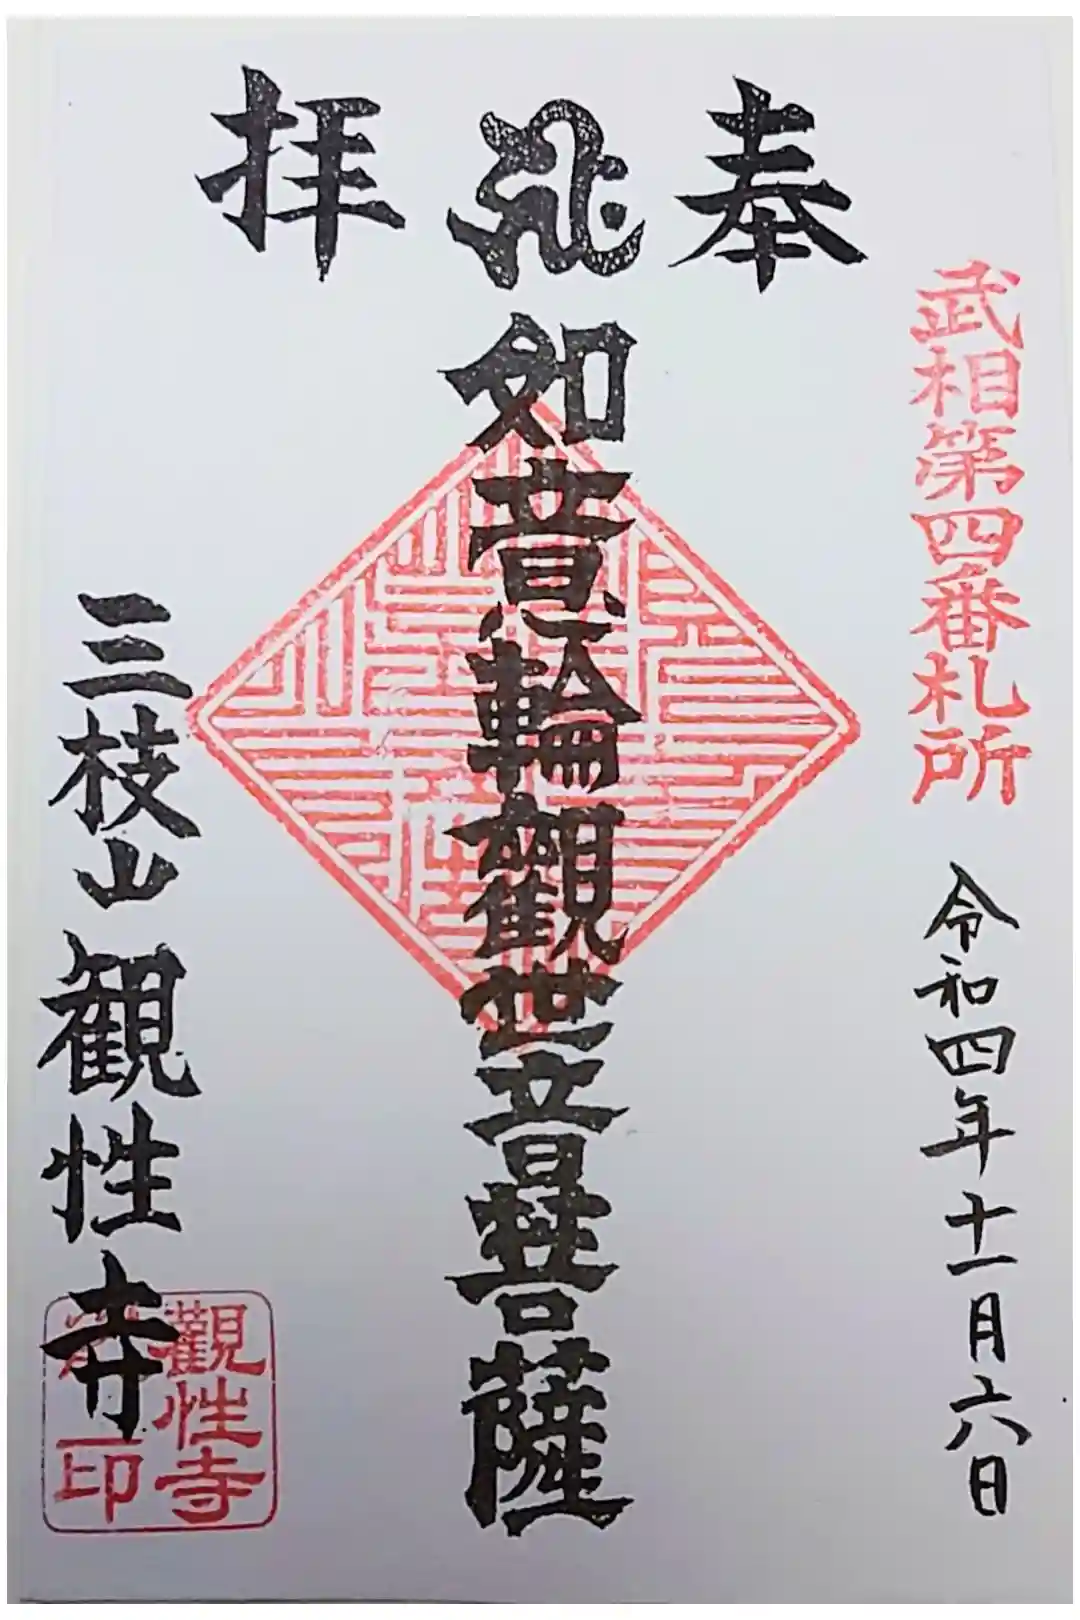 奉拝
武相第四番札所
令和四年十一月六日
如意輪観世音菩薩
三枝山観性寺
觀性寺
印